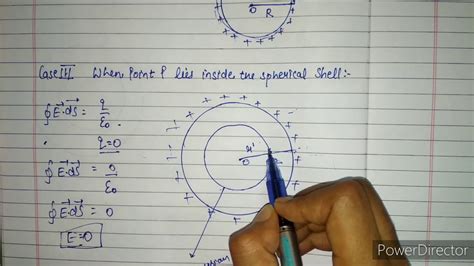 O R
Case III. When Point P lies inside the spherical shell:-
∮E⃗·dS⃗ = q/ε₀
q=0
∮E⃗·dS⃗ = 0/ε₀
∮E⃗·dS⃗ = 0
E=0
r'
O
PowerDirector